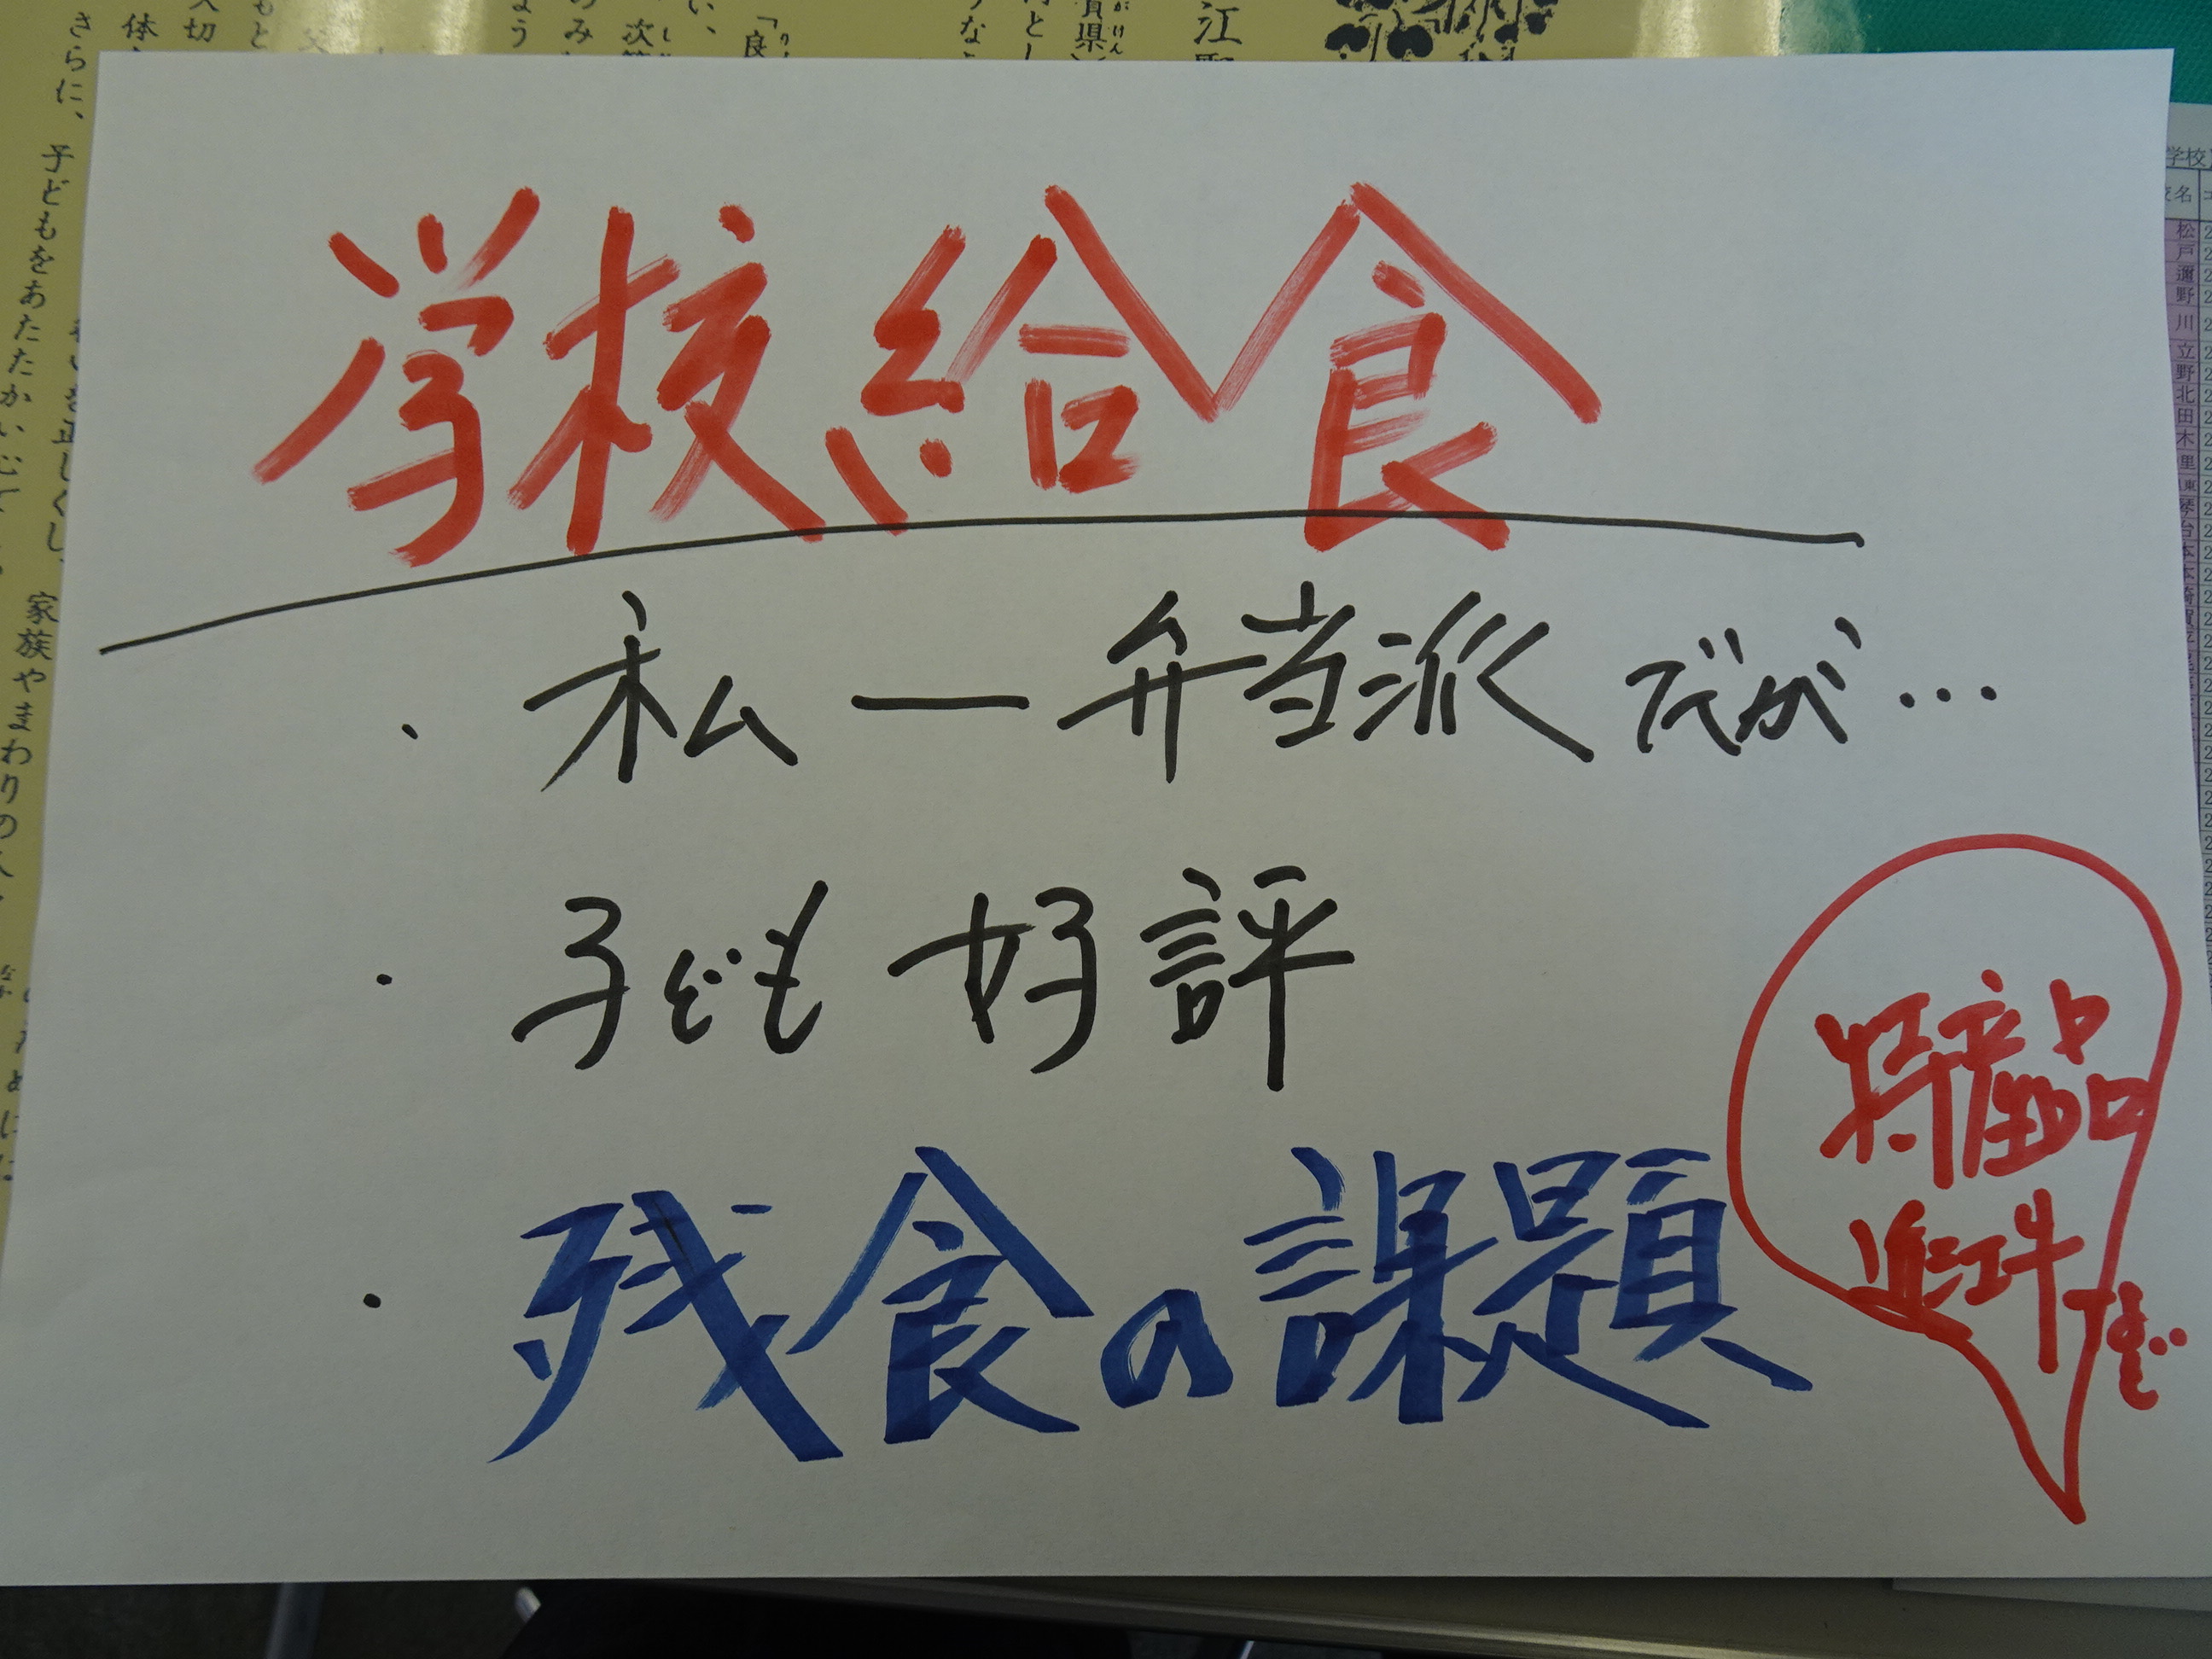 学校給食
・私 ― 弁当派 だが…
・子ども 好評
・残食の課題
特産品
近江牛
など
さらに、子どもをあたたかい心で
家族やまわりの人
学校
校名
松
戸
野
川
立
野
北
田
木
里